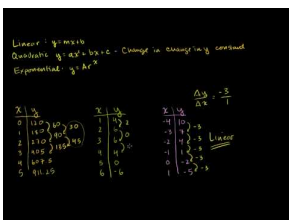 Linear: y=mx+b
Quadratic y=ax²+bx+c - Change in change in y constant
Exponential: y=Ar^x
Δy/Δx = -3/1
x | y
0 120
1 180
2 270
3 405
4 607.5
5 911.25
60
90
135
30
45
x | y
1 4
2 6
3 6
4 4
5 0
6 -6
2
0
x | y
-4 10
-3 7
-2 4
-1 1
0 -2
1 -5
-3
-3
-3
-3
-3
Linear